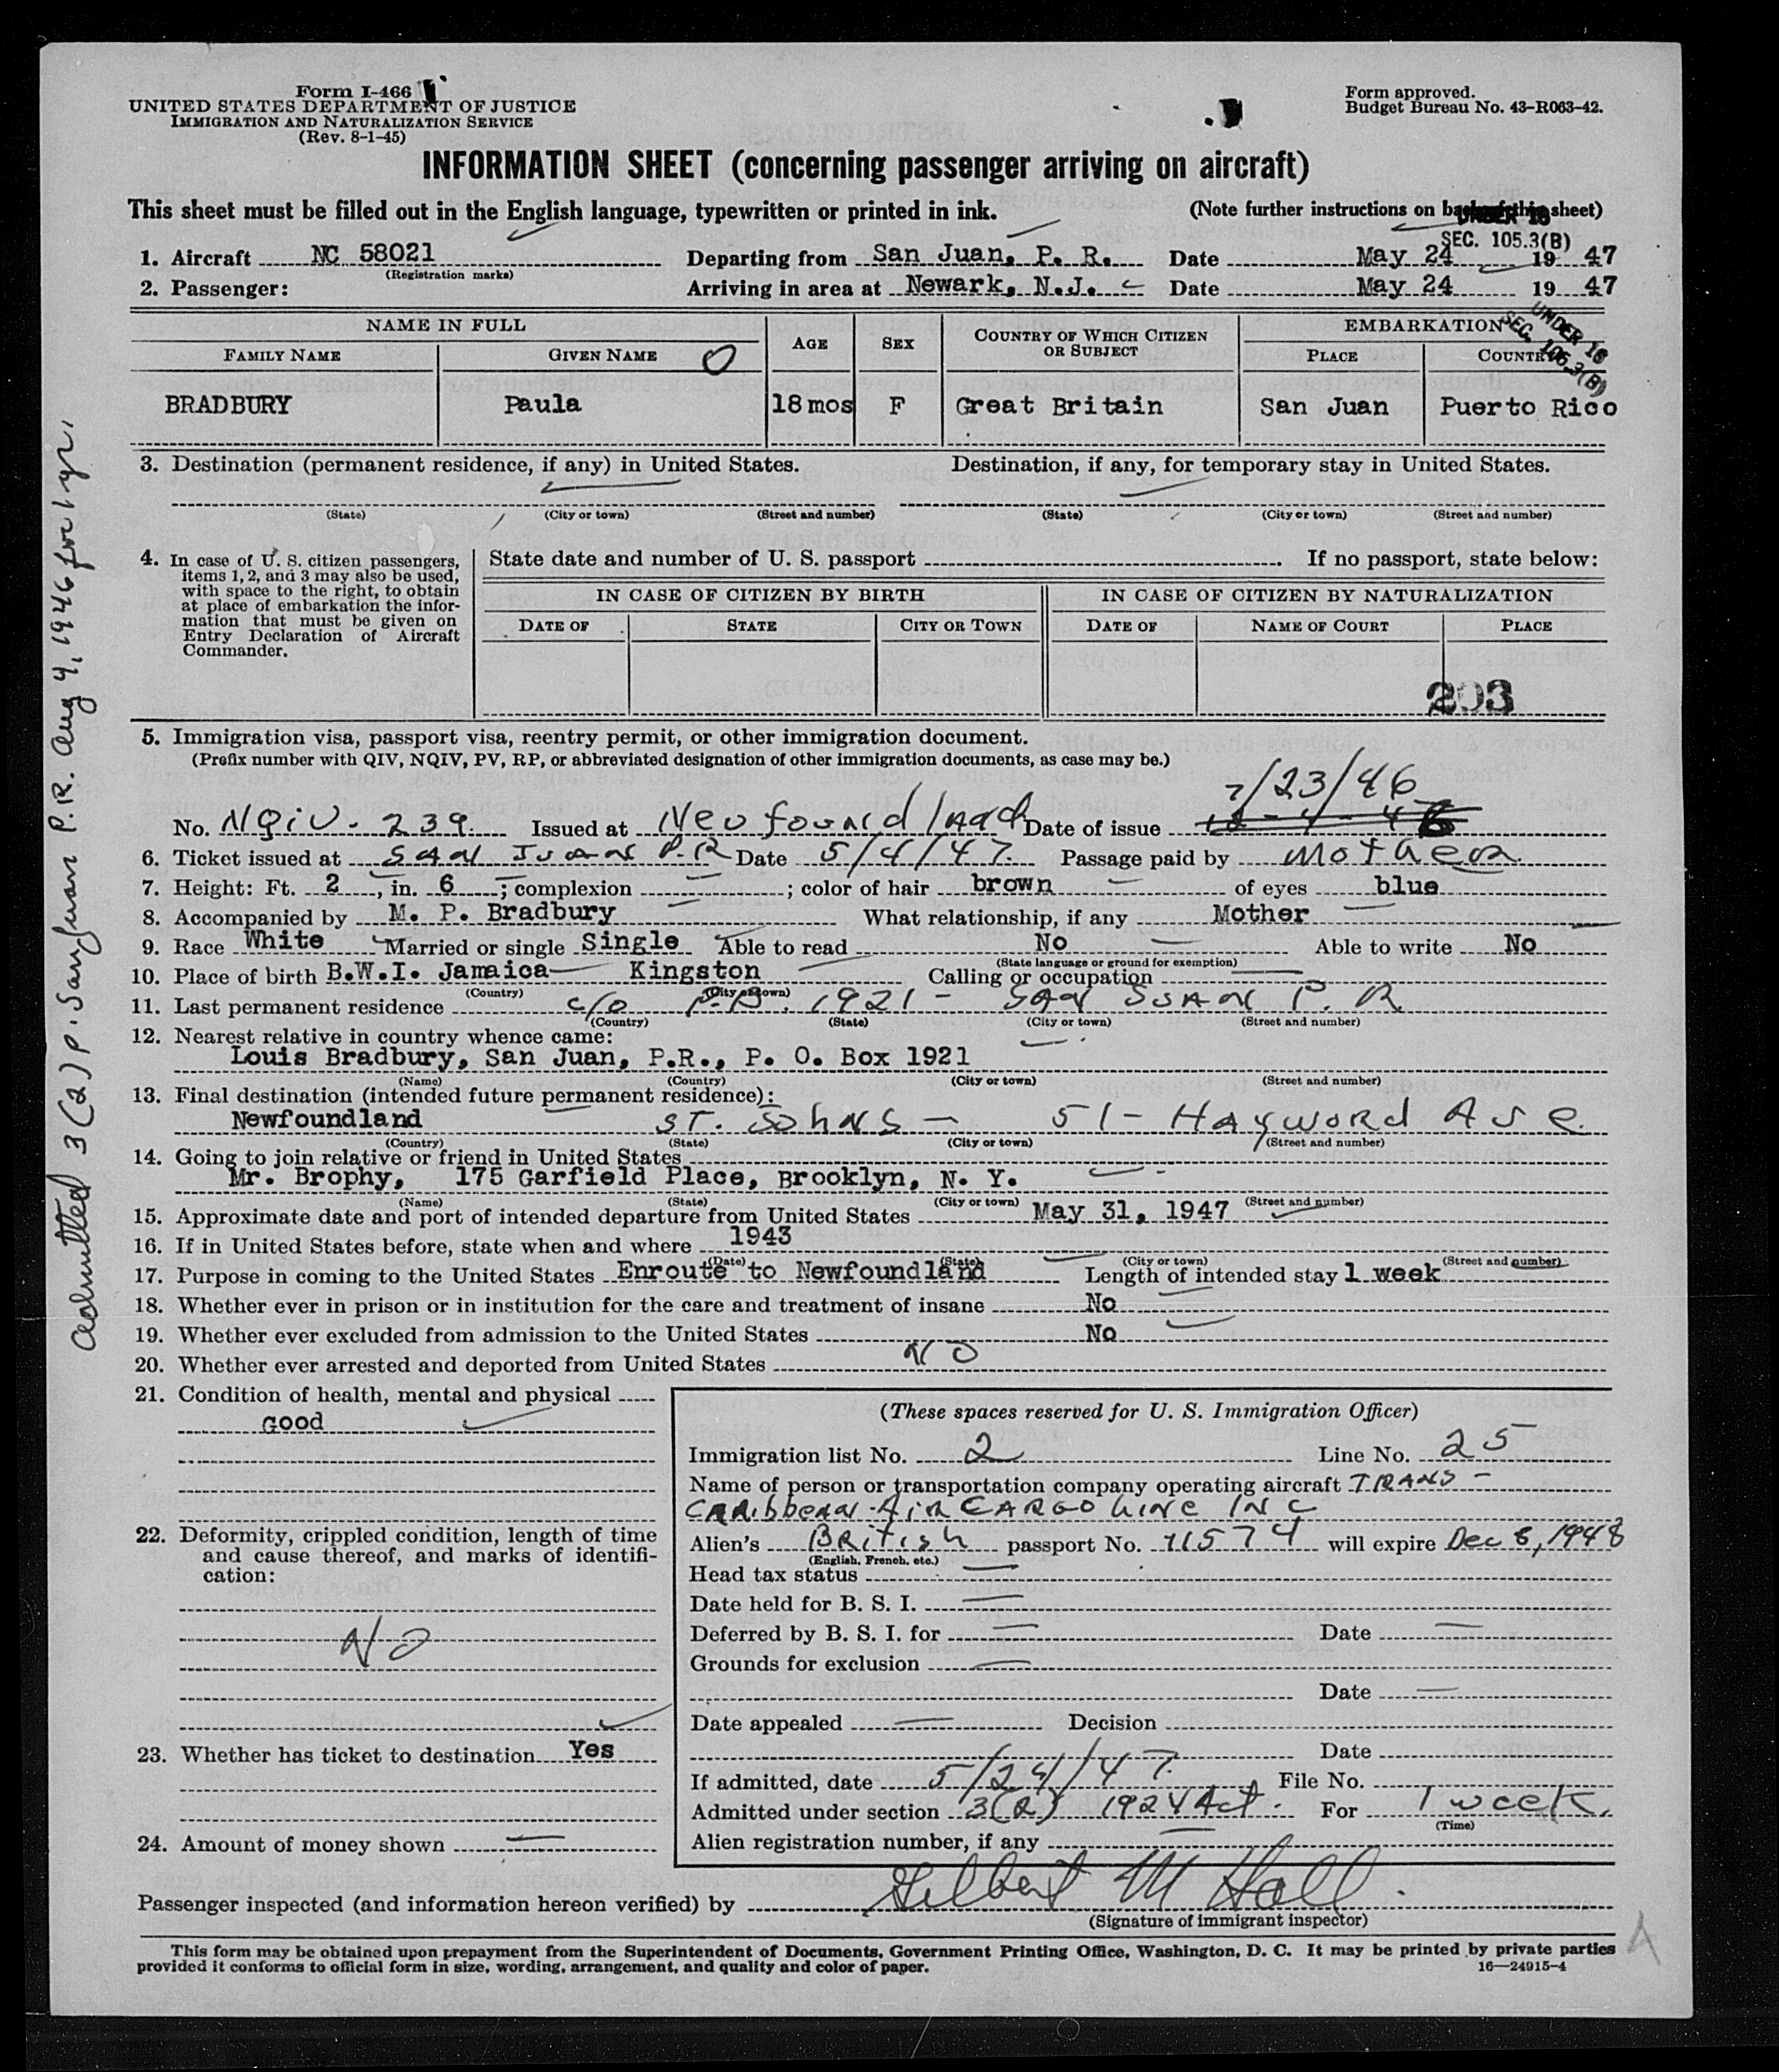 Form I-466
UNITED STATES DEPARTMENT OF JUSTICE
IMMIGRATION AND NATURALIZATION SERVICE
(Rev. 8-1-45)
Form approved.
Budget Bureau No. 43-R063-42.
INFORMATION SHEET (concerning passenger arriving on aircraft)
This sheet must be filled out in the English language, typewritten or printed in ink. (Note further instructions on back of this sheet)
UNDER 16
SEC. 105.3(B)
1. Aircraft NC 58021 Departing from San Juan, P. R. Date May 24 19 47
(Registration marks)
2. Passenger: Arriving in area at Newark, N.J. Date May 24 19 47
UNDER 16
SEC. 105.3(B)
NAME IN FULL AGE SEX COUNTRY OF WHICH CITIZEN OR SUBJECT EMBARKATION
FAMILY NAME GIVEN NAME PLACE COUNTRY
BRADBURY Paula 18mos F Great Britain San Juan Puerto Rico
3. Destination (permanent residence, if any) in United States. Destination, if any, for temporary stay in United States.
(State) (City or town) (Street and number) (State) (City or town) (Street and number)
4. In case of U. S. citizen passengers,
items 1, 2, and 3 may also be used,
with space to the right, to obtain
at place of embarkation the infor-
mation that must be given on
Entry Declaration of Aircraft
Commander.
State date and number of U. S. passport If no passport, state below:
IN CASE OF CITIZEN BY BIRTH IN CASE OF CITIZEN BY NATURALIZATION
DATE OF STATE CITY OR TOWN DATE OF NAME OF COURT PLACE
203
5. Immigration visa, passport visa, reentry permit, or other immigration document.
(Prefix number with QIV, NQIV, PV, RP, or abbreviated designation of other immigration documents, as case may be.)
7/23/46
No. NQIV-239 Issued at Newfoundland Date of issue 12-4-46
6. Ticket issued at SAN JUAN P.R Date 5/4/47 Passage paid by Mother
7. Height: Ft. 2, in. 6; complexion ; color of hair brown of eyes blue
8. Accompanied by M. P. Bradbury What relationship, if any Mother
9. Race White Married or single Single Able to read No Able to write No
(State language or ground for exemption)
10. Place of birth B.W.I. Jamaica Kingston Calling or occupation
(Country) (City or town)
11. Last permanent residence c/o P.B. 1921 - SAN JUAN P.R
(Country) (State) (City or town) (Street and number)
12. Nearest relative in country whence came:
Louis Bradbury, San Juan, P.R., P. O. Box 1921
(Name) (Country) (City or town) (Street and number)
13. Final destination (intended future permanent residence):
Newfoundland ST. JOHNS - 51 - HAYWORD AVE
(Country) (State) (City or town) (Street and number)
14. Going to join relative or friend in United States
Mr. Brophy, 175 Garfield Place, Brooklyn, N. Y.
(Name) (State) (City or town) (Street and number)
15. Approximate date and port of intended departure from United States May 31, 1947
16. If in United States before, state when and where 1943
(Date) (State) (City or town) (Street and number)
17. Purpose in coming to the United States Enroute to Newfoundland Length of intended stay 1 week
18. Whether ever in prison or in institution for the care and treatment of insane No
19. Whether ever excluded from admission to the United States No
20. Whether ever arrested and deported from United States NO
21. Condition of health, mental and physical
Good
22. Deformity, crippled condition, length of time
and cause thereof, and marks of identifi-
cation:
NO
23. Whether has ticket to destination Yes
24. Amount of money shown
(These spaces reserved for U. S. Immigration Officer)
Immigration list No. 2 Line No. 25
Name of person or transportation company operating aircraft TRANS-
CARIBBEAN-AIR CARGO LINE INC
Alien's BRITISH passport No. 11574 will expire Dec 8, 1948
(English, French, etc.)
Head tax status
Date held for B. S. I.
Deferred by B. S. I. for Date
Grounds for exclusion
Date
Date appealed Decision
Date
If admitted, date 5/24/47 File No.
Admitted under section 3(2) 1924 Act. For 1 week.
(Time)
Alien registration number, if any
Passenger inspected (and information hereon verified) by Gilbert M Hall
(Signature of immigrant inspector)
This form may be obtained upon prepayment from the Superintendent of Documents, Government Printing Office, Washington, D. C. It may be printed by private parties
provided it conforms to official form in size, wording, arrangement, and quality and color of paper. 16—24915-4
A
Admitted 3(2) P. San Juan P.R. Aug 4, 1946 for 1 yr.